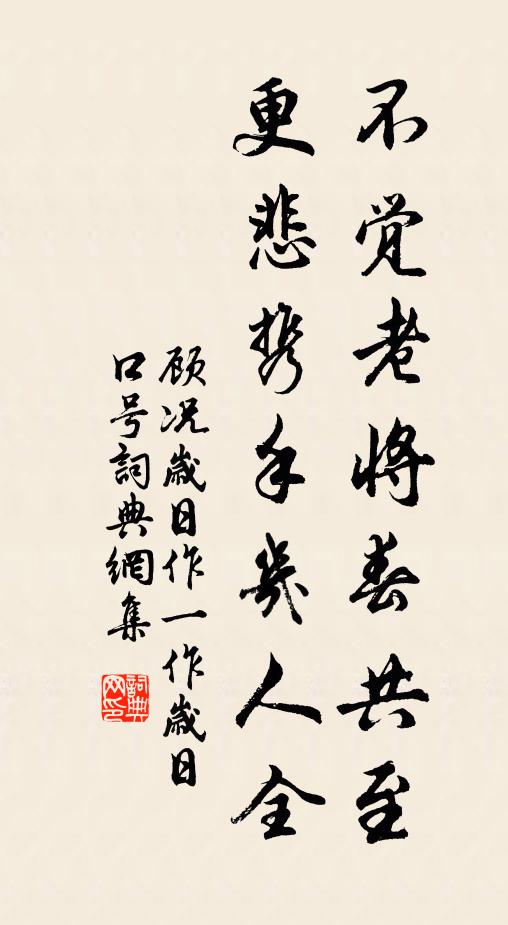 不觉老将春共至
更悲携手几人全
顾况歲日作一作歲日
口号詞典網集
詞典
网印